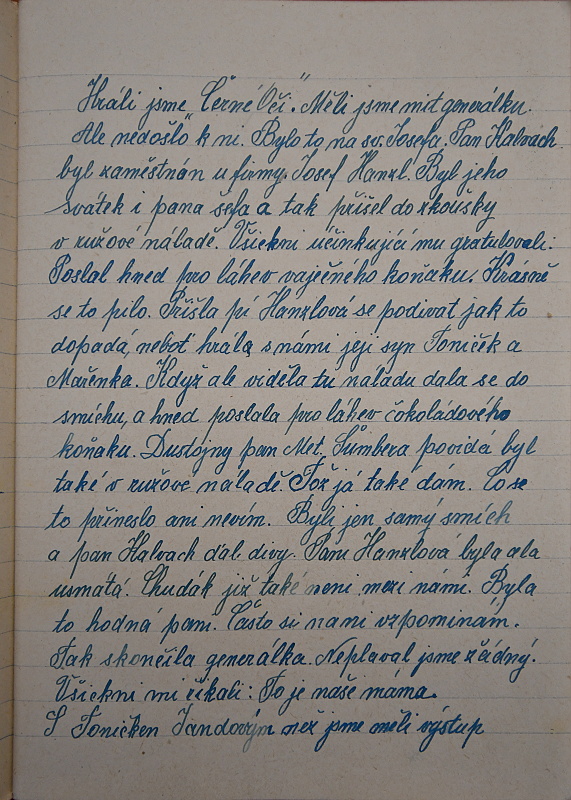 Hráli jsme „Černé Oči". Měli jsme mit generálku.
Ale nedošlo k ni. Bylo to na sv. Josefa. Pan Halvach
byl zaměstnán u firmy. Josef Hanzl. Byl jeho
svátek i pana šefa a tak přišel do zkoušky
v ružové náladě. Všickni účinkující mu gratulovali.
Poslal hned pro láhev vaječného koňáku. Krásně
se to pilo. Přišla pí Hanzlová se podivat jak to
dopadá, neboť hrála s námi jeji syn Toníček a
Mařenka. Když ale viděla tu náladu dala se do
smíchu, a hned poslala pro láhev čokoládového
koňaku. Dustojny pan Met. Šumbera povidá byl
také v ružové náladě. Tož já také dám. Co se
to přineslo ani nevím. Byli jen samý smích
a pan Halvach dal divy. Pani Hanzlová byla cela
usmátá. Chudák již také neni mezi námi. Byla
to hodná pani. Často si na ni vzpominám.
Tak skončila generálka. Neplaval jsme žádný.
Všickni mi řikali: To je naše máma.
S Toničken Jandovým než jsme měli výstup